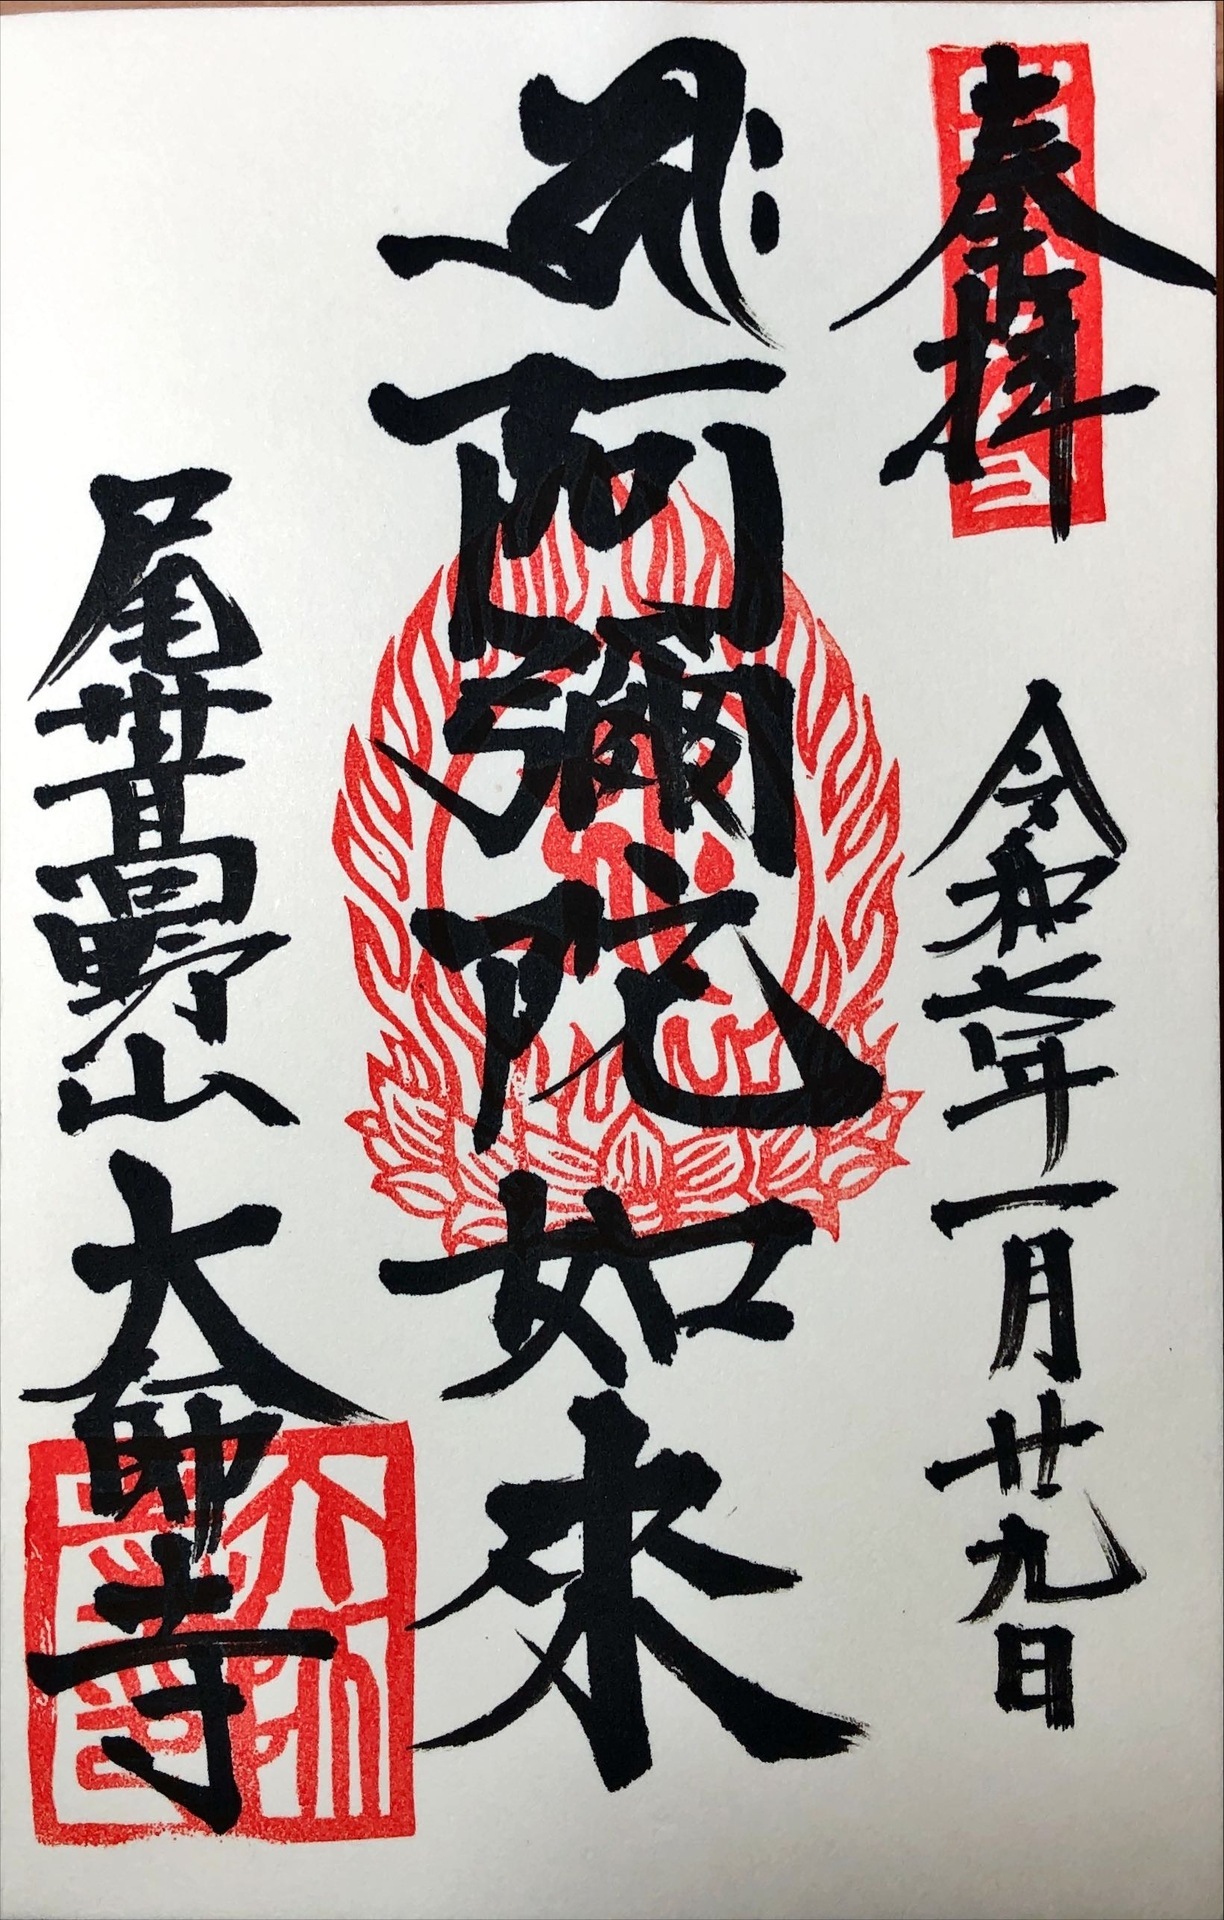 奉拝
令和七年一月廿九日
𑖮𑖿𑖨𑖱𑖾
阿彌陀如來
尾世高野山
大師寺